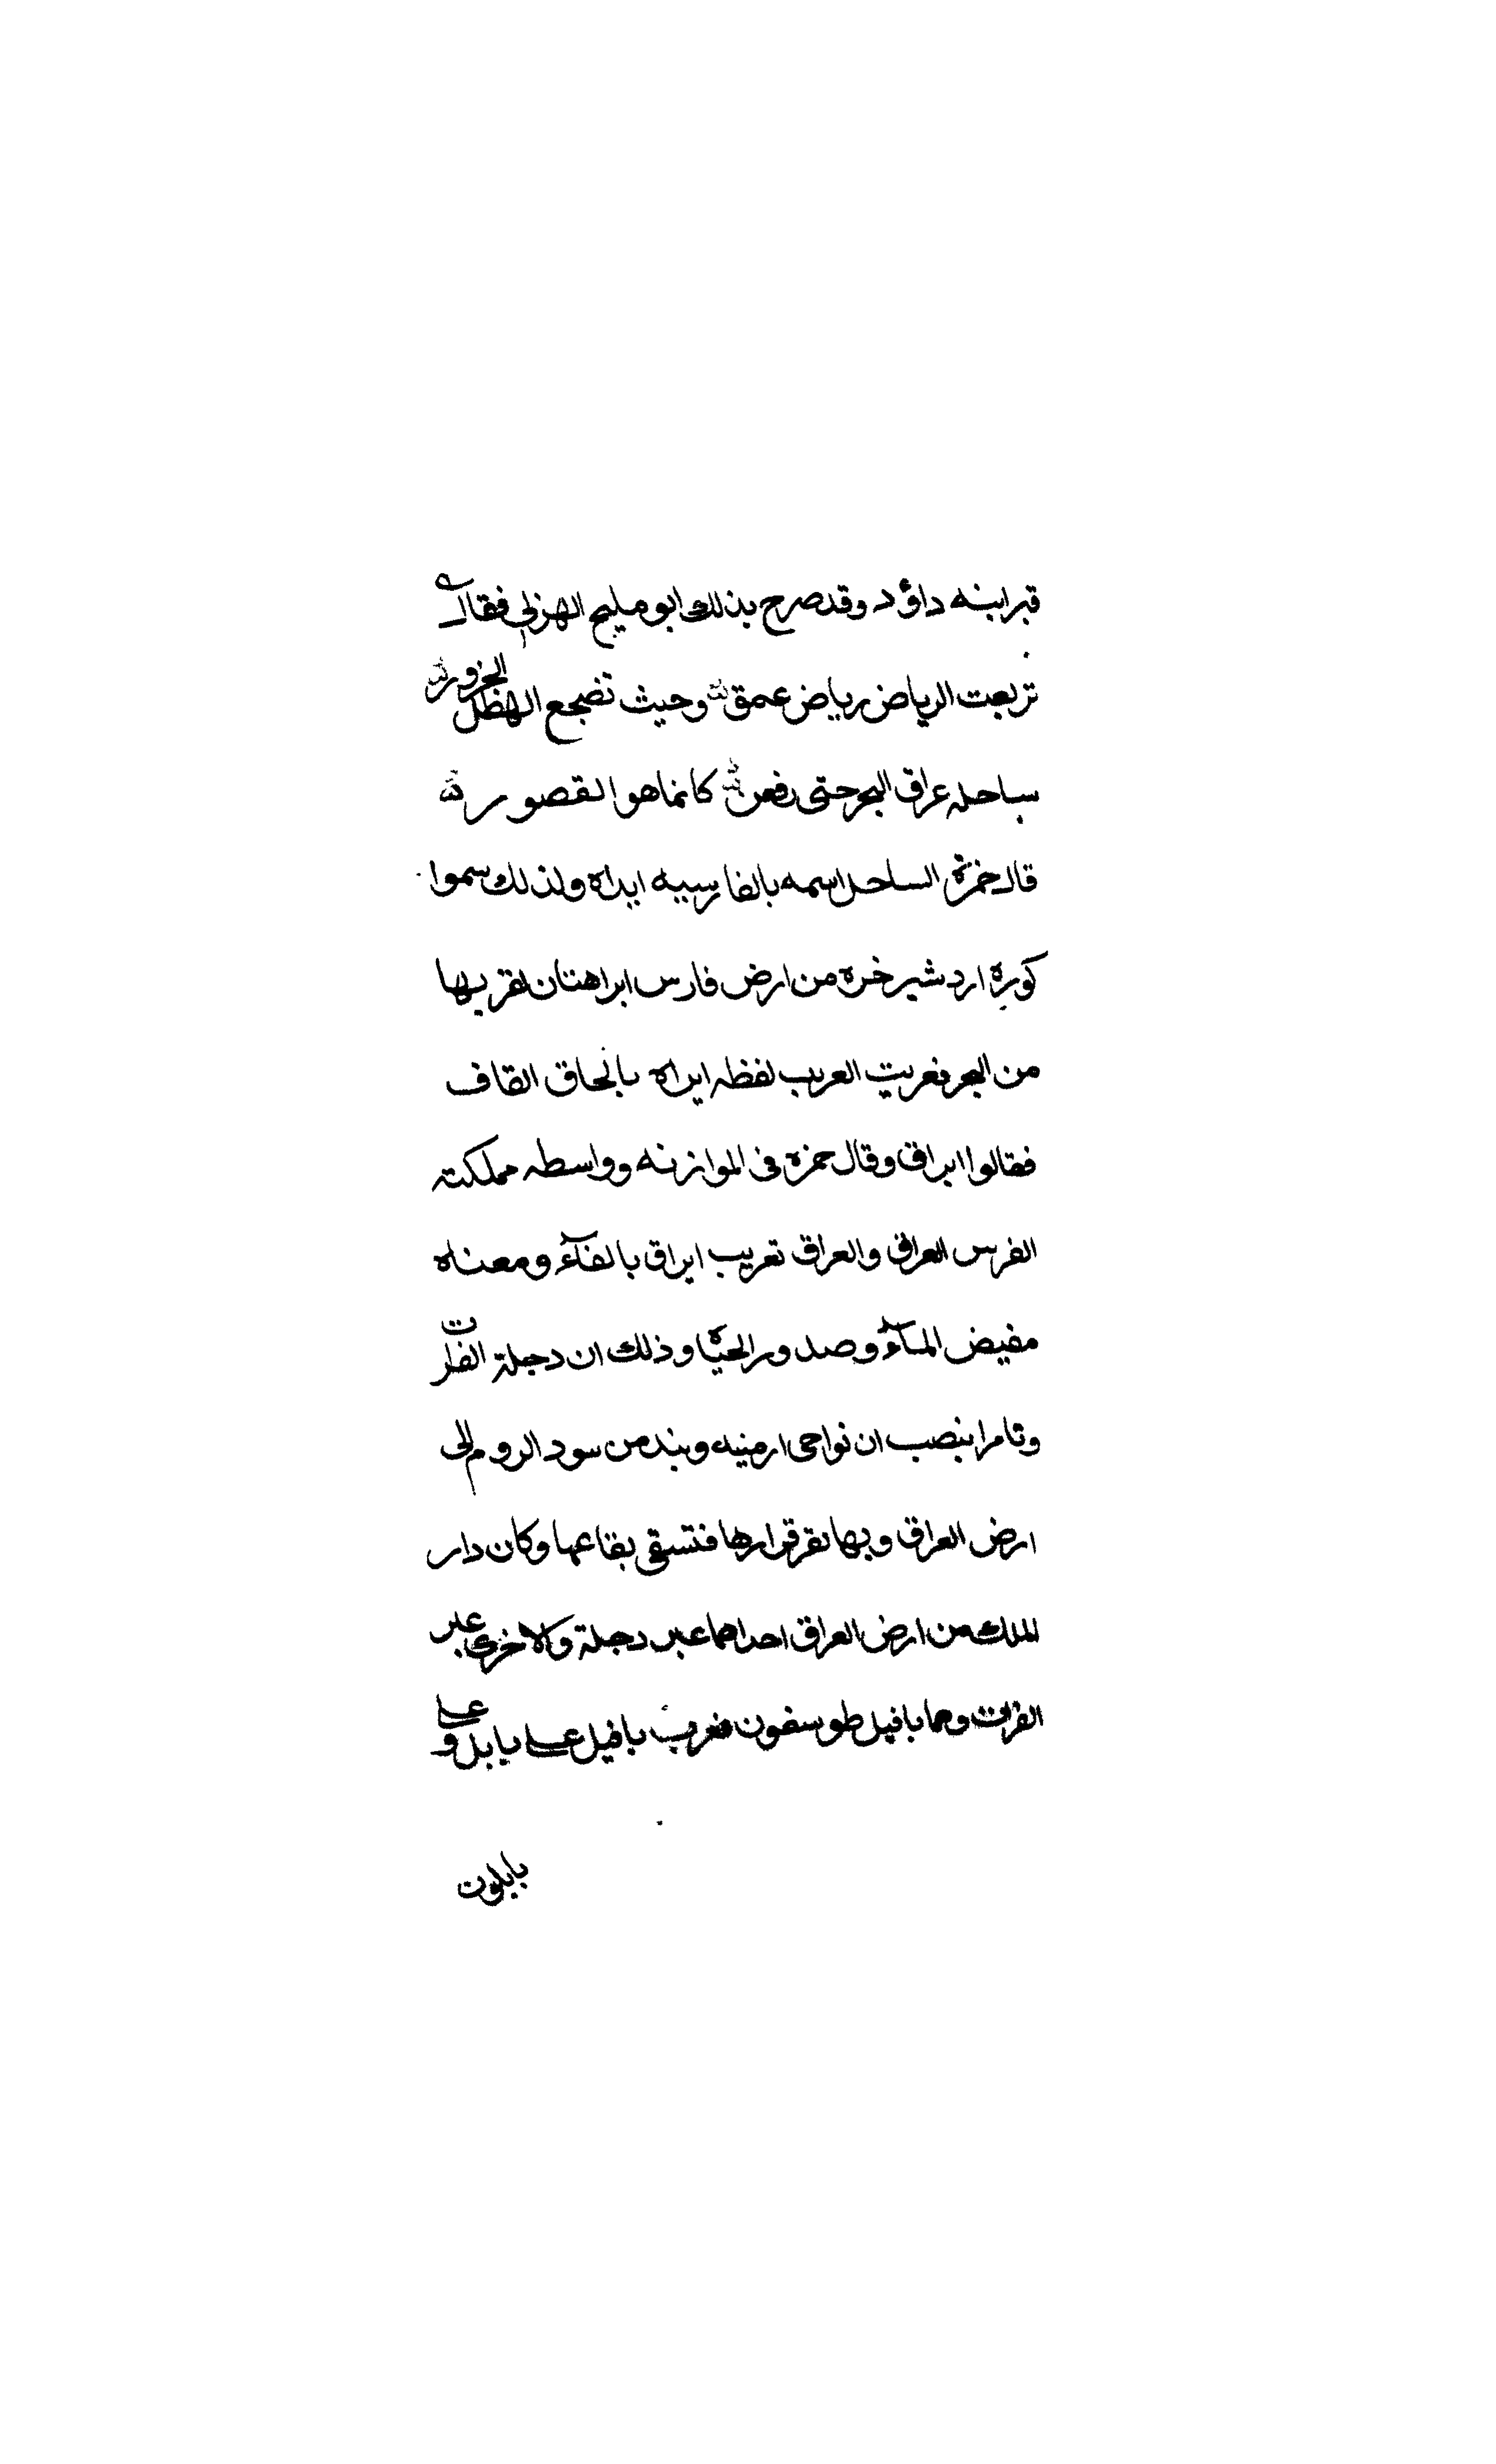 قبر ابنه داؤد وقد صرح بذلك ابو مليح الهزلي فقال
تربعت الرياض رياض عمق وحيث تضجع الهطل الخرور
بساحله عراق البحر حتى رفعن كانما هو القصور
قال حمزة الساحل اسمه بالفارسيه ايراه ولذلك سموا
كورة اردشير خره من ارض فارس ايراهتان لقربها
من البحر فعربت العرب لفظه ايراه بالحاق القاف
فقالوا ايراق وقال حمزه فى الموازنه وواسطه مملكته
الفرس العراق والعراق تعريب ايراق بالفآء ومعناه
مفيض المآء وصدور الحياة وذلك ان دجلة الفرات
وتامرا ينصب ان نواحى ارمنيه وبند من سود الروم الى
ارض العراق وبها يقر قرارها فتسقى بقاعها وكان دار
الملك من ارض العراق احداهما عبر دجلة والاخرى عبر
الفرات وهما بافيل طوسفون فعرب بافيل على بابل و على
بابلون